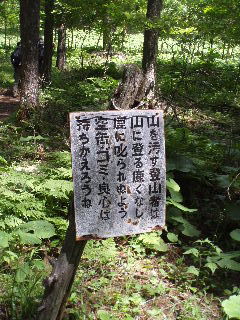 山を汚す登山者は
山に登る廌くなし
廌に叱られぬよう
空缶・ゴミ・良心は
持ちかえろうね